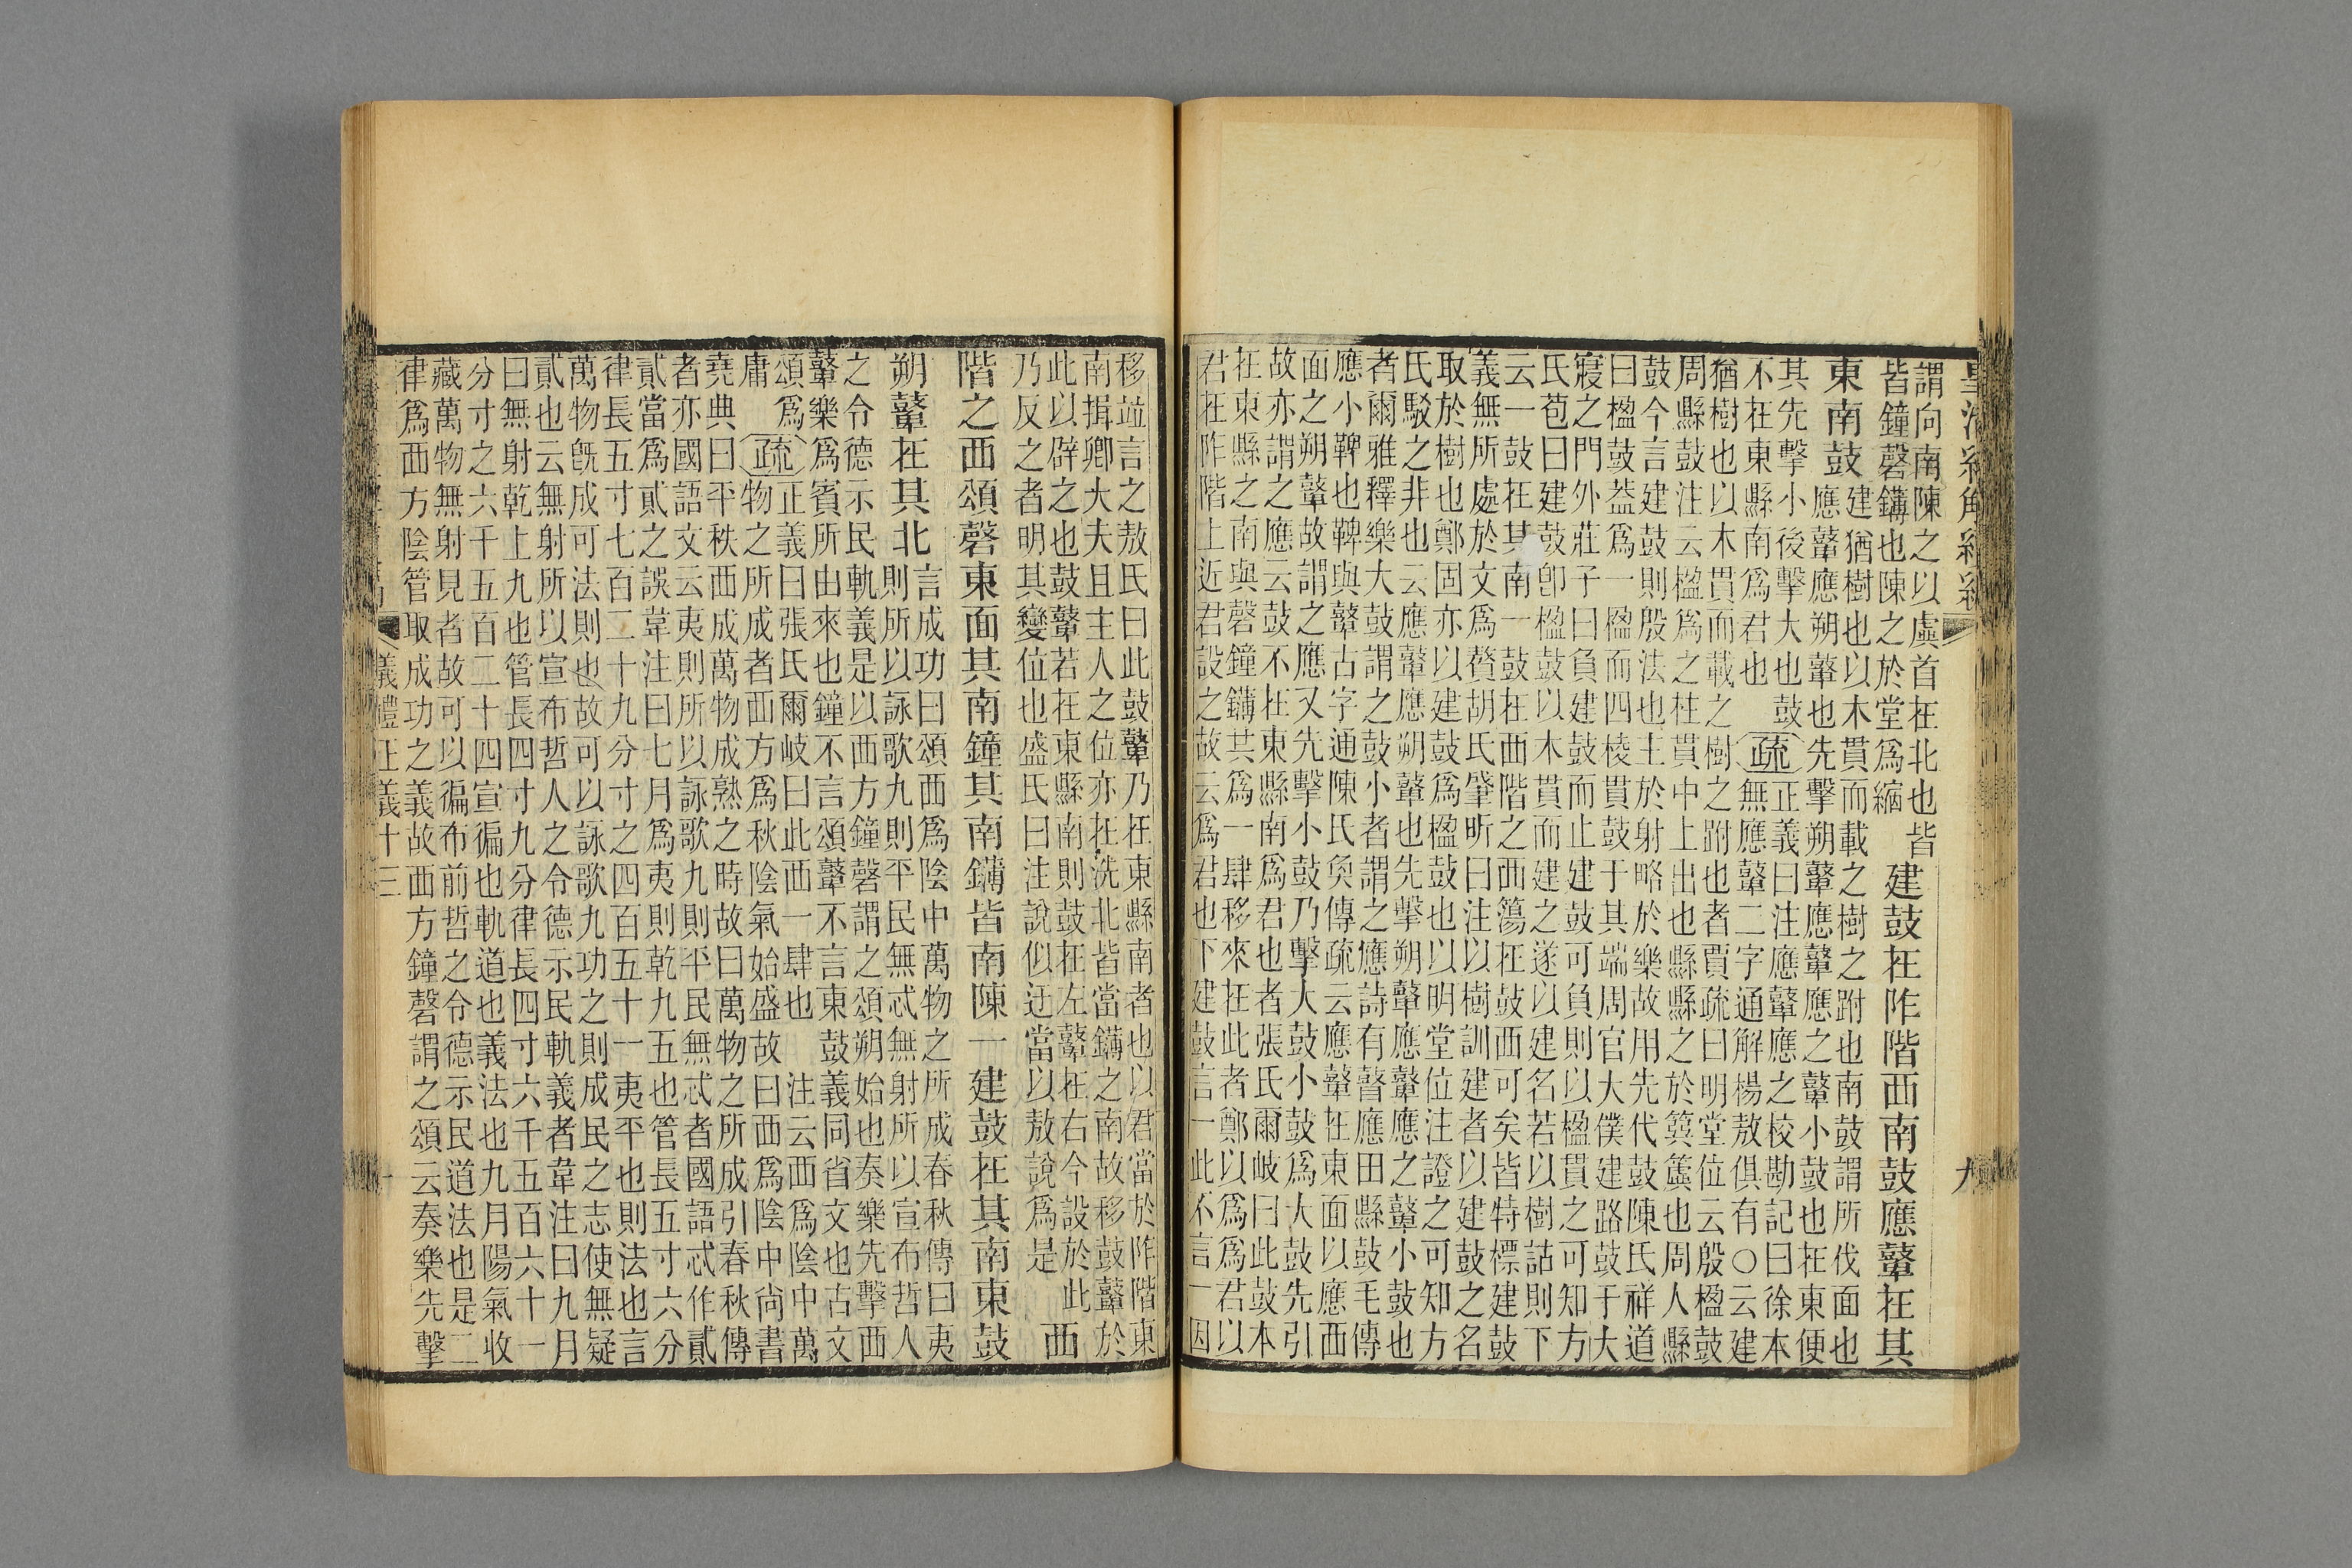 皇清經解續編
九
謂向南陳之以虡首在北也皆
皆鐘磬鏄也陳之於堂爲縮
建鼓在阼階西南鼓應鼙在其
東南鼓
建猶樹也以木貫而載之樹之跗也南鼓謂所伐面也
應鼙應朔鼙也先擊朔鼙應鼙應之鼙小鼓也在東便
其先擊小後擊大也鼓
不在東縣南爲君也
疏
正義曰注應鼙應之校勘記曰徐本
無應鼙二字通解楊敖俱有○云建
猶樹也以木貫而載之樹之跗也者賈疏曰明堂位云殷楹鼓
周縣鼓注云楹爲之柱貫中上出也縣縣之於簨簴也周人縣
鼓今言建鼓則殷法也主於射略於樂故用先代鼓陳氏祥道
曰楹鼓葢爲一楹而四棱貫鼓于其端周官大僕建路鼓于大
寢之門外莊子曰負建鼓而止建鼓可負則以楹貫之可知方
氏苞曰建鼓卽楹鼓以木貫而建之遂以建名若以樹詁則下
云一鼓在其南一鼓在西階之西簜在鼓西可矣皆特標建鼓
義無所處於文爲贅胡氏肇昕曰注以樹訓建者以建鼓之名
取於樹也鄭固亦以建鼓爲楹鼓也以明堂位注證之可知方
氏駁之非也云應鼙應朔鼙也先擊朔鼙應鼙應之鼙小鼓也
者爾雅釋樂大鼓謂之鼓小者謂之應詩有瞽應田縣鼓毛傳
應小鞞也鞞與鼙古字通陳氏奐傳疏云應鼙在東面以應西
面之朔鼙故謂之應又先擊小鼓乃擊大鼓小鼓爲大鼓先引
故亦謂之應云鼓不在東縣南爲君也者張氏爾岐曰此鼓本
在東縣之南與磬鐘鏄共爲一肆移來在此者鄭以爲爲君以
君在阼階上近君設之故云爲君也下建鼓言一此不言一因
移竝言之敖氏曰此鼓鼙乃在東縣南者也以君當於阼階東
南揖卿大夫且主人之位亦在洗北皆當鏄之南故移鼓鼙於
此以辟之也鼓鼙若在東縣南則鼓在左鼙在右今設於此
乃反之者明其變位也盛氏曰注說似迂當以敖說爲是
西
階之西頌磬東面其南鐘其南鏄皆南陳一建鼓在其南東鼓
朔鼙在其北
言成功曰頌西爲陰中萬物之所成春秋傳曰夷
則所以詠歌九則平民無忒無射所以宣布哲人
之令德示民軌義是以西方鐘磬謂之頌朔始也奏樂先擊西
鼙樂爲賓所由來也鐘不言頌鼙不言東鼓義同省文也古文
頌爲
庸
疏
正義曰張氏爾岐曰此西一肆也 注云西爲陰中萬
物之所成者西方爲秋陰氣始盛故曰西爲陰中尚書
堯典曰平秩西成萬物成熟之時故曰萬物之所成引春秋傳
者亦國語文云夷則所以詠歌九則平民無忒者國語忒作貳
貳當爲貳之誤韋注曰七月爲夷則乾九五也管長五寸六分
律長五寸七百二十九分寸之四百五十一夷平也則法也言
萬物旣成可法則也故可以詠歌九功之則成民之志使無疑
貳也云無射所以宣布哲人之令德示民軌義者韋注曰九月
曰無射乾上九也管長四寸九分律長四寸六千五百六十一
分寸之六千五百二十四宣徧也軌道也義法也九月陽氣收
藏萬物無射見者故可以徧布前哲之令德示民道法也是二
律爲西方陰管取成功之義故西方鐘磬謂之頌云奏樂先擊
儀禮正義十三